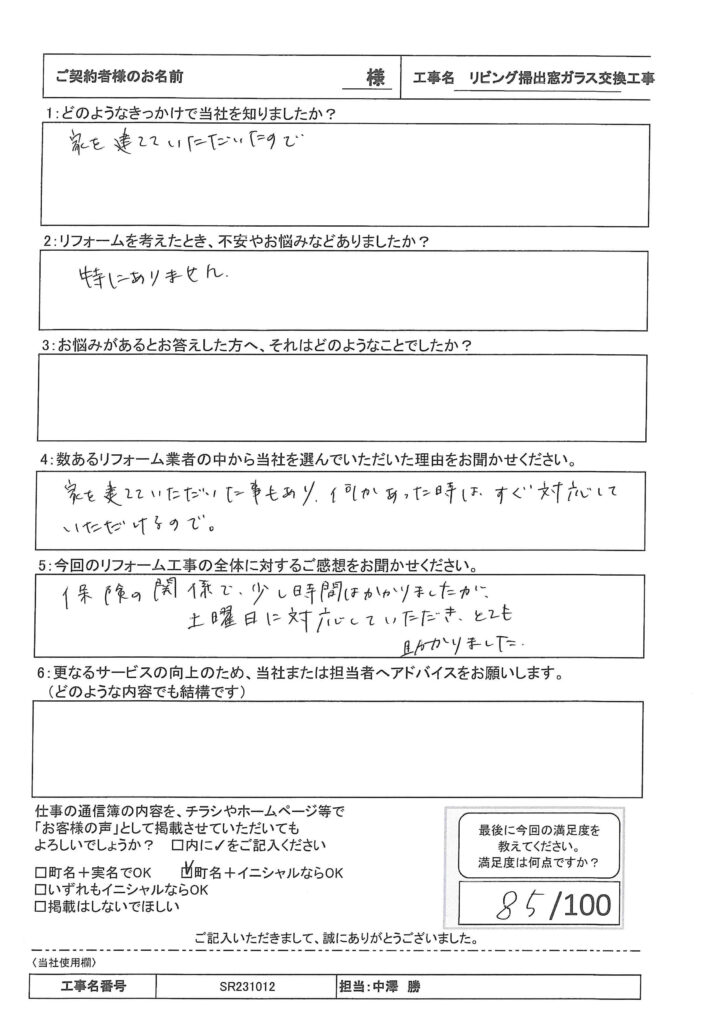 ご契約者様のお名前 様 工事名 リビング掃出窓ガラス交換工事
1:どのようなきっかけで当社を知りましたか?
家を建てていただいたので
2:リフォームを考えたとき、不安やお悩みなどありましたか?
特にありません.
3:お悩みがあるとお答えした方へ、それはどのようなことでしたか?
4:数あるリフォーム業者の中から当社を選んでいただいた理由をお聞かせください。
家を建てていただいた事もあり、何かあった時は、すぐ対応して
いただけるので。
5:今回のリフォーム工事の全体に対するご感想をお聞かせください。
保険の関係で、少し時間はかかりましたが、
土曜日に対応していただき、とても
助かりました.
6:更なるサービスの向上のため、当社または担当者へアドバイスをお願いします。
(どのような内容でも結構です)
仕事の通信簿の内容を、チラシやホームページ等で
「お客様の声」として掲載させていただいても
よろしいでしょうか? □内に✓をご記入ください
□町名+実名でOK ☑町名+イニシャルならOK
□いずれもイニシャルならOK
□掲載はしないでほしい
最後に今回の満足度を
教えてください。
満足度は何点ですか?
85/100
ご記入いただきまして、誠にありがとうございました。
(当社使用欄)
工事名番号 SR231012 担当:中澤 勝